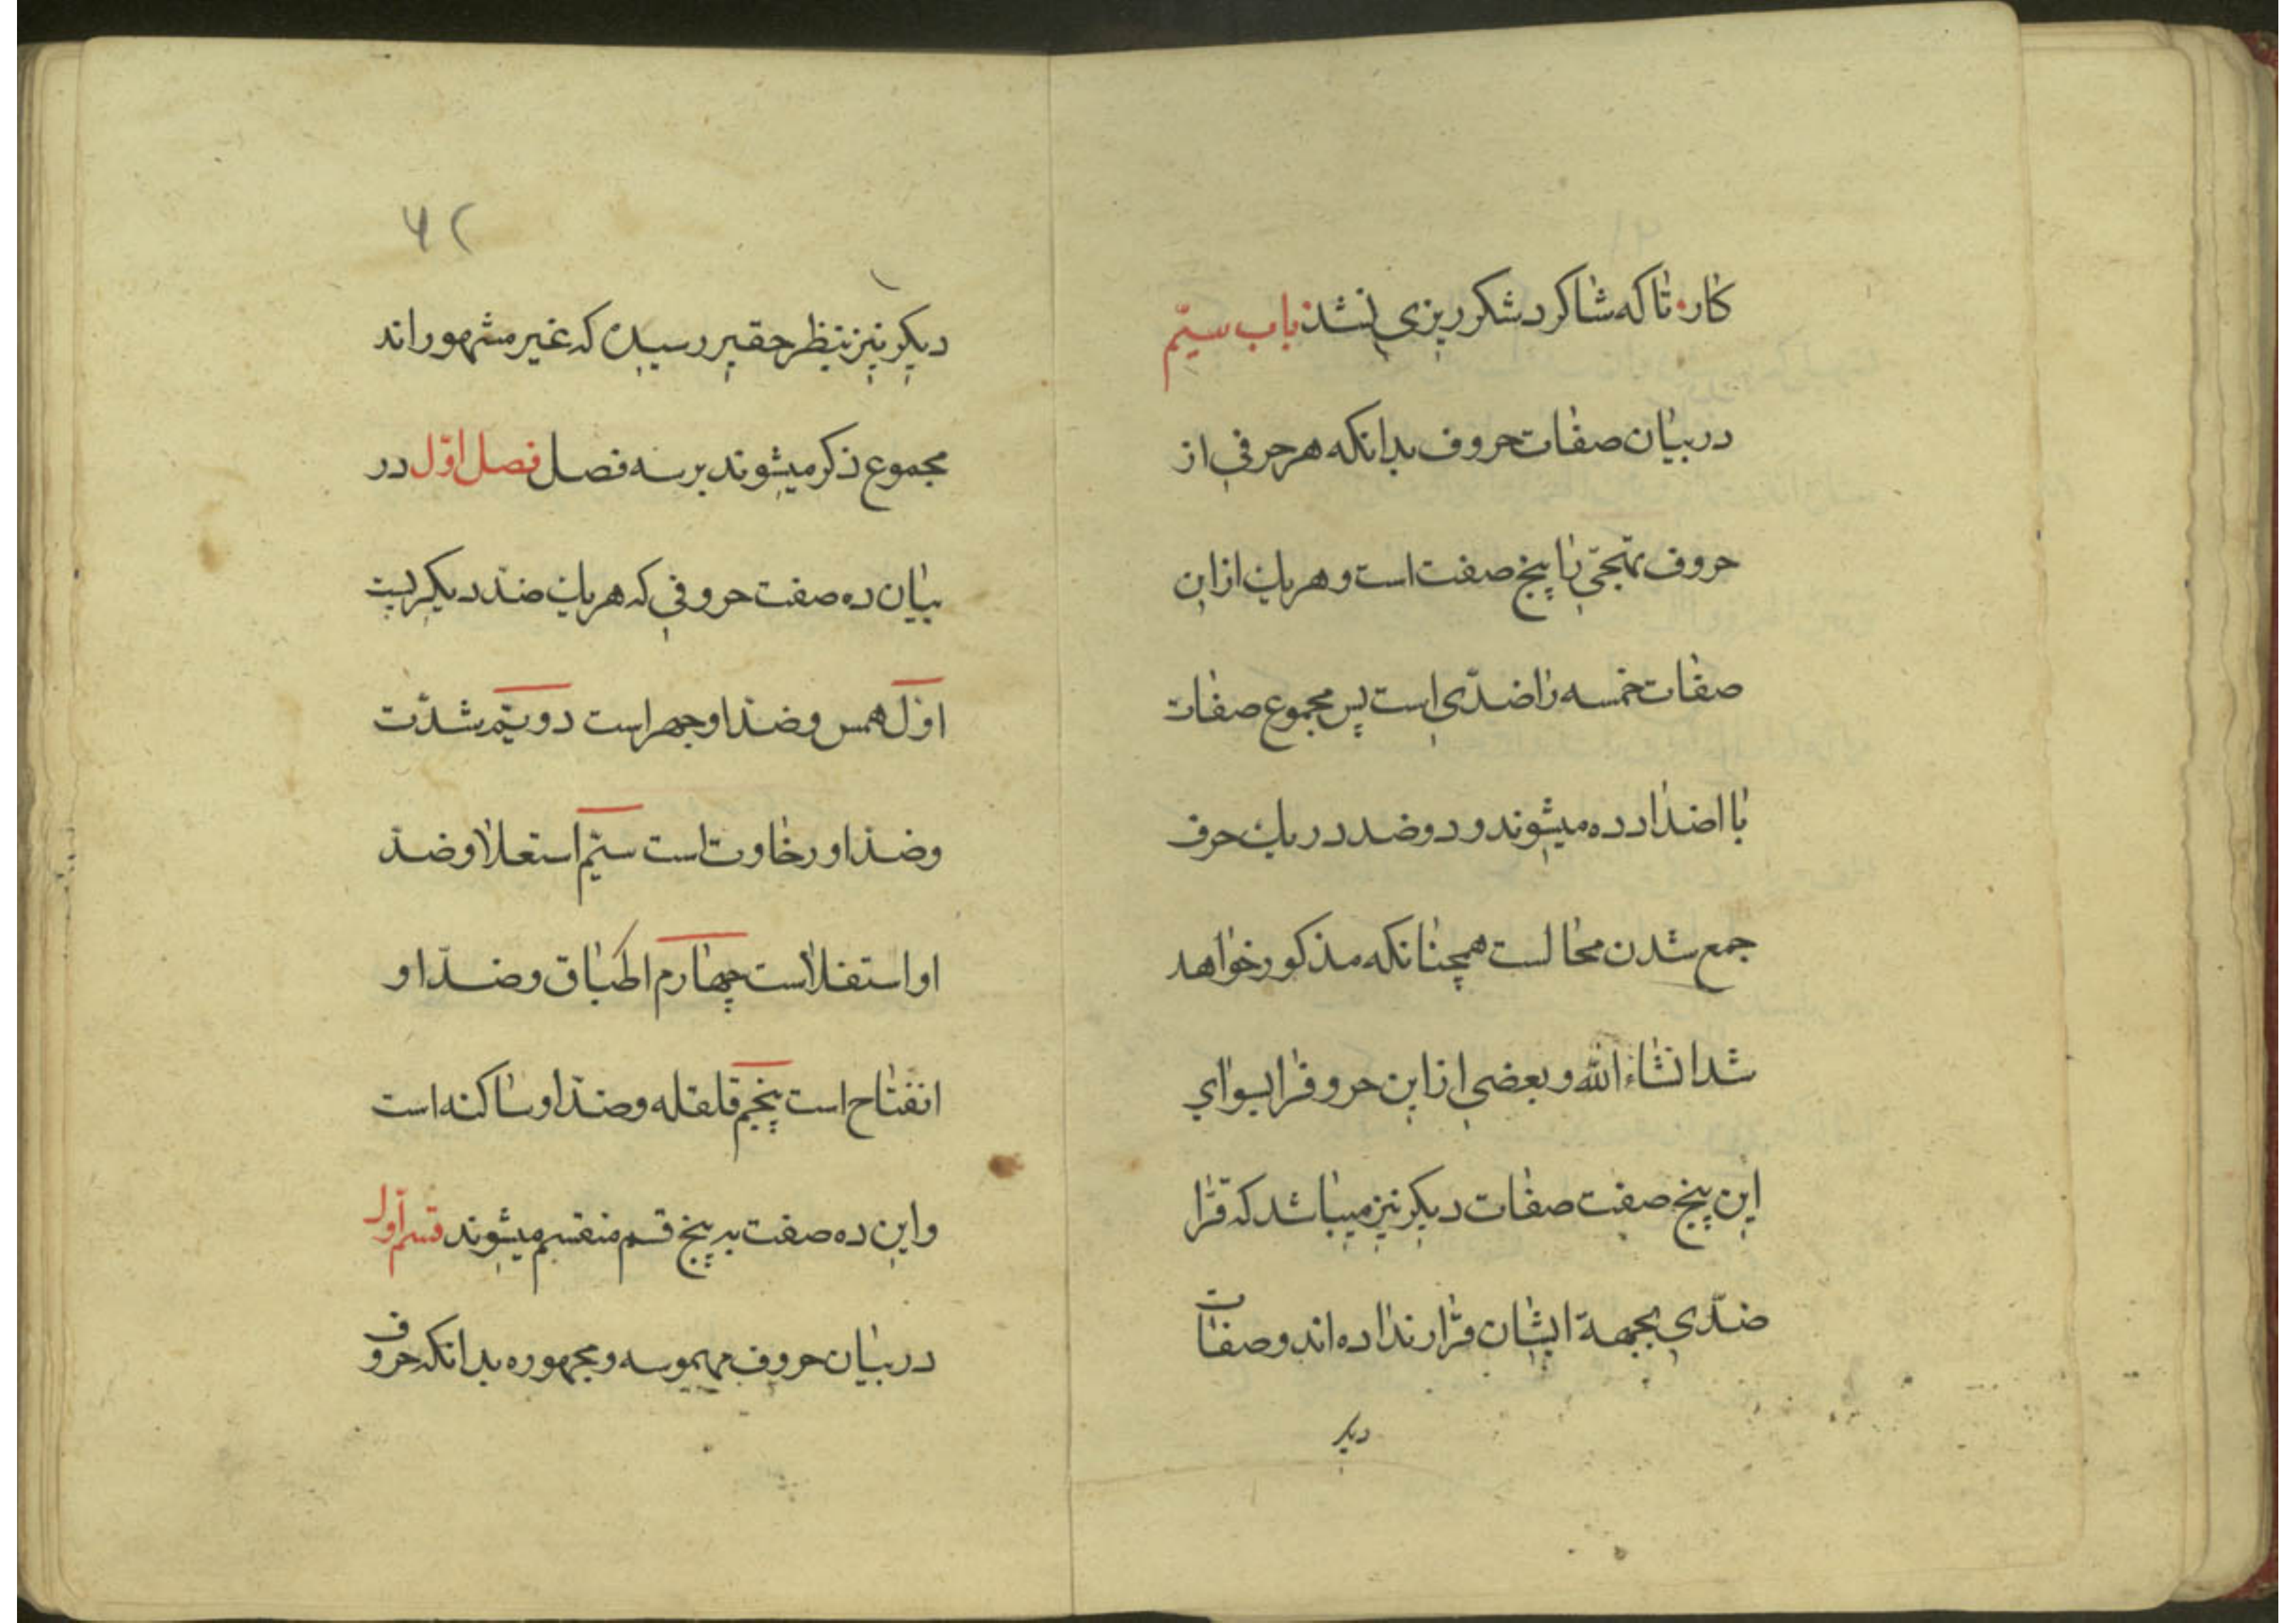 کار تا که شاکرد شکرریزی نشد باب سیّم
در بیان صفات حروف بدانکه هر حرفی از
حروف تهجّی را پنج صفت است و هر یك از این
صفات خمسه را ضدّی است پس مجموع صفات
با اضداد ده میشوند و دو ضد در یك حرف
جمع شدن محالست همچنانکه مذکور خواهد
شد انشاء الله و بعضی از این حروفرا بسوای
این پنج صفت صفات دیکر نیز میباشد که قرّا
ضدّی بجهة ایشان قرار نداده اند و صفات
دیکر
۶۲
دیکر نیز بنظر حقیر رسیده که غیر مشهوراند
مجموع ذکر میشوند بر سه فصل فصل اوّل در
بیان ده صفت حروفی که هر یك ضدّ دیکریست
اوّل همس و ضدّ او جهر است دویّم شدّت
و ضدّ او رخاوت است سیّم استعلا و ضدّ
او استفلاست چهارم اطباق و ضدّ او
انفتاح است پنجم قلقله و ضدّ او ساکنه است
و این ده صفت به پنج قسم منقسم میشوند قسم اوّل
در بیان حروف مهموسه و مجهوره بدانکه حروف